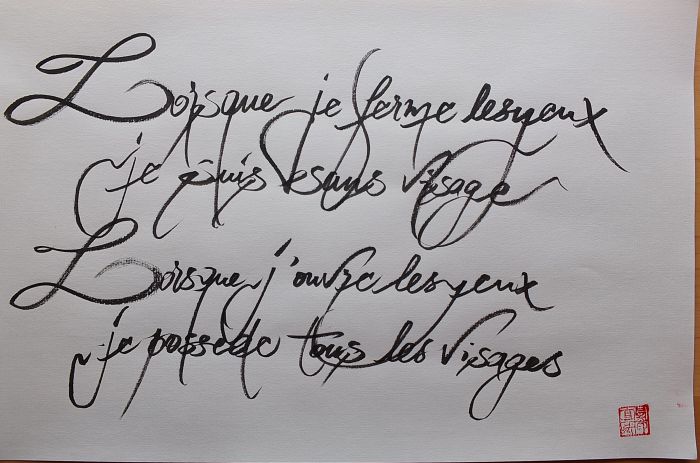 Lorsque je ferme les yeux
je suis sans visage
Lorsque j'ouvre les yeux
je possède tous les visages